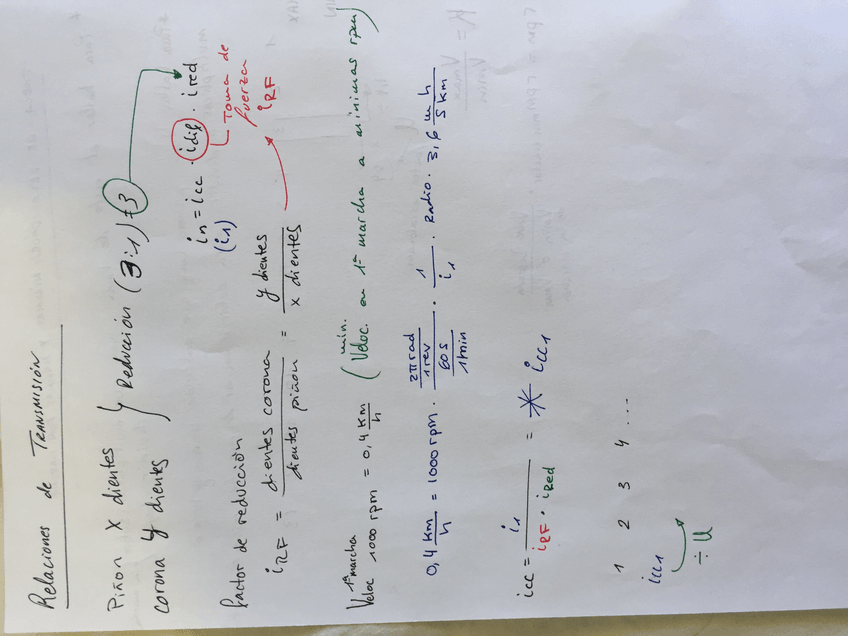 Relaciones de TRANSMISIÓN
Piñon x dientes
corona y dientes
Reducción (3:1) = 3
factor de reducción
in = icc · idif · ired
(i1)
Toma de fuerza
iRF
iRF = dientes corona / dientes piñon = y dientes / x dientes
Veloc 1ª marcha 1000 rpm = 0,4 Km/h (Veloc. min. en 1ª marcha a mínimas rpm)
0,4 Km/h = 1000 rpm · (2π rad / 1 rev) / (60 s / 1 min) · 1/i1 · Radio · 3,6 m h / s km
icc = i1 / (iRF · iRed) = * icc1
1 2 3 4 ...
icc1
÷ U